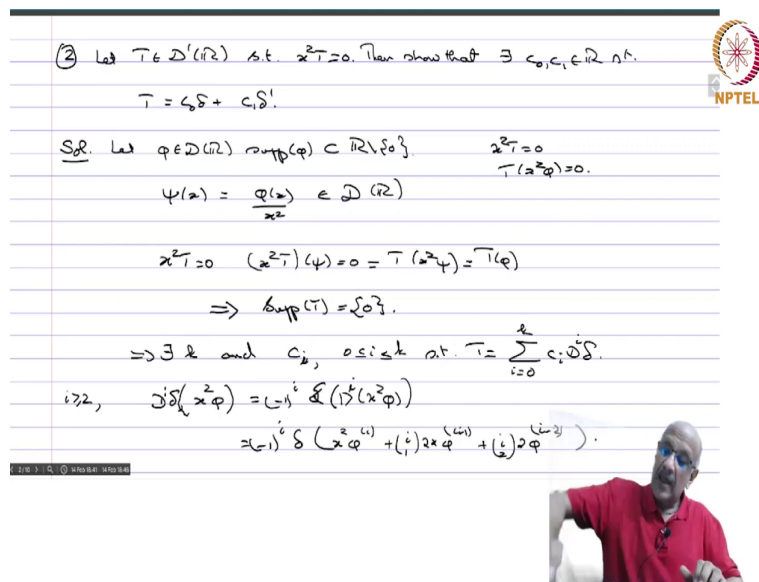 ② Let T ∈ D'(ℝ) s.t. x²T=0. Then show that ∃ c₀,c₁ ∈ ℝ s.t.
T = c₀δ + c₁δ'.
Sol. Let φ∈D(ℝ) supp(φ) ⊂ ℝ\{0}.
x²T=0
T(x²φ)=0.
ψ(x) = φ(x)/x² ∈ D(ℝ)
x²T=0 (x²T)(ψ)=0 = T(x²ψ)=T(φ)
⇒ Supp(T)={0}.
⇒ ∃ k and cᵢ, 0≤i≤k s.t. T= ∑_{i=0}^{k} cᵢDⁱδ.
i≥2, Dⁱδ(x²φ) = (-1)ⁱ δ(Dⁱ(x²φ))
=(-1)ⁱ δ (x²φ⁽ⁱ⁾ + (i 1) 2x φ⁽ⁱ⁻¹⁾ + (i 2) 2φ⁽ⁱ⁻²⁾).
NPTEL
2/10 14 Feb 18:41 14 Feb 18:45